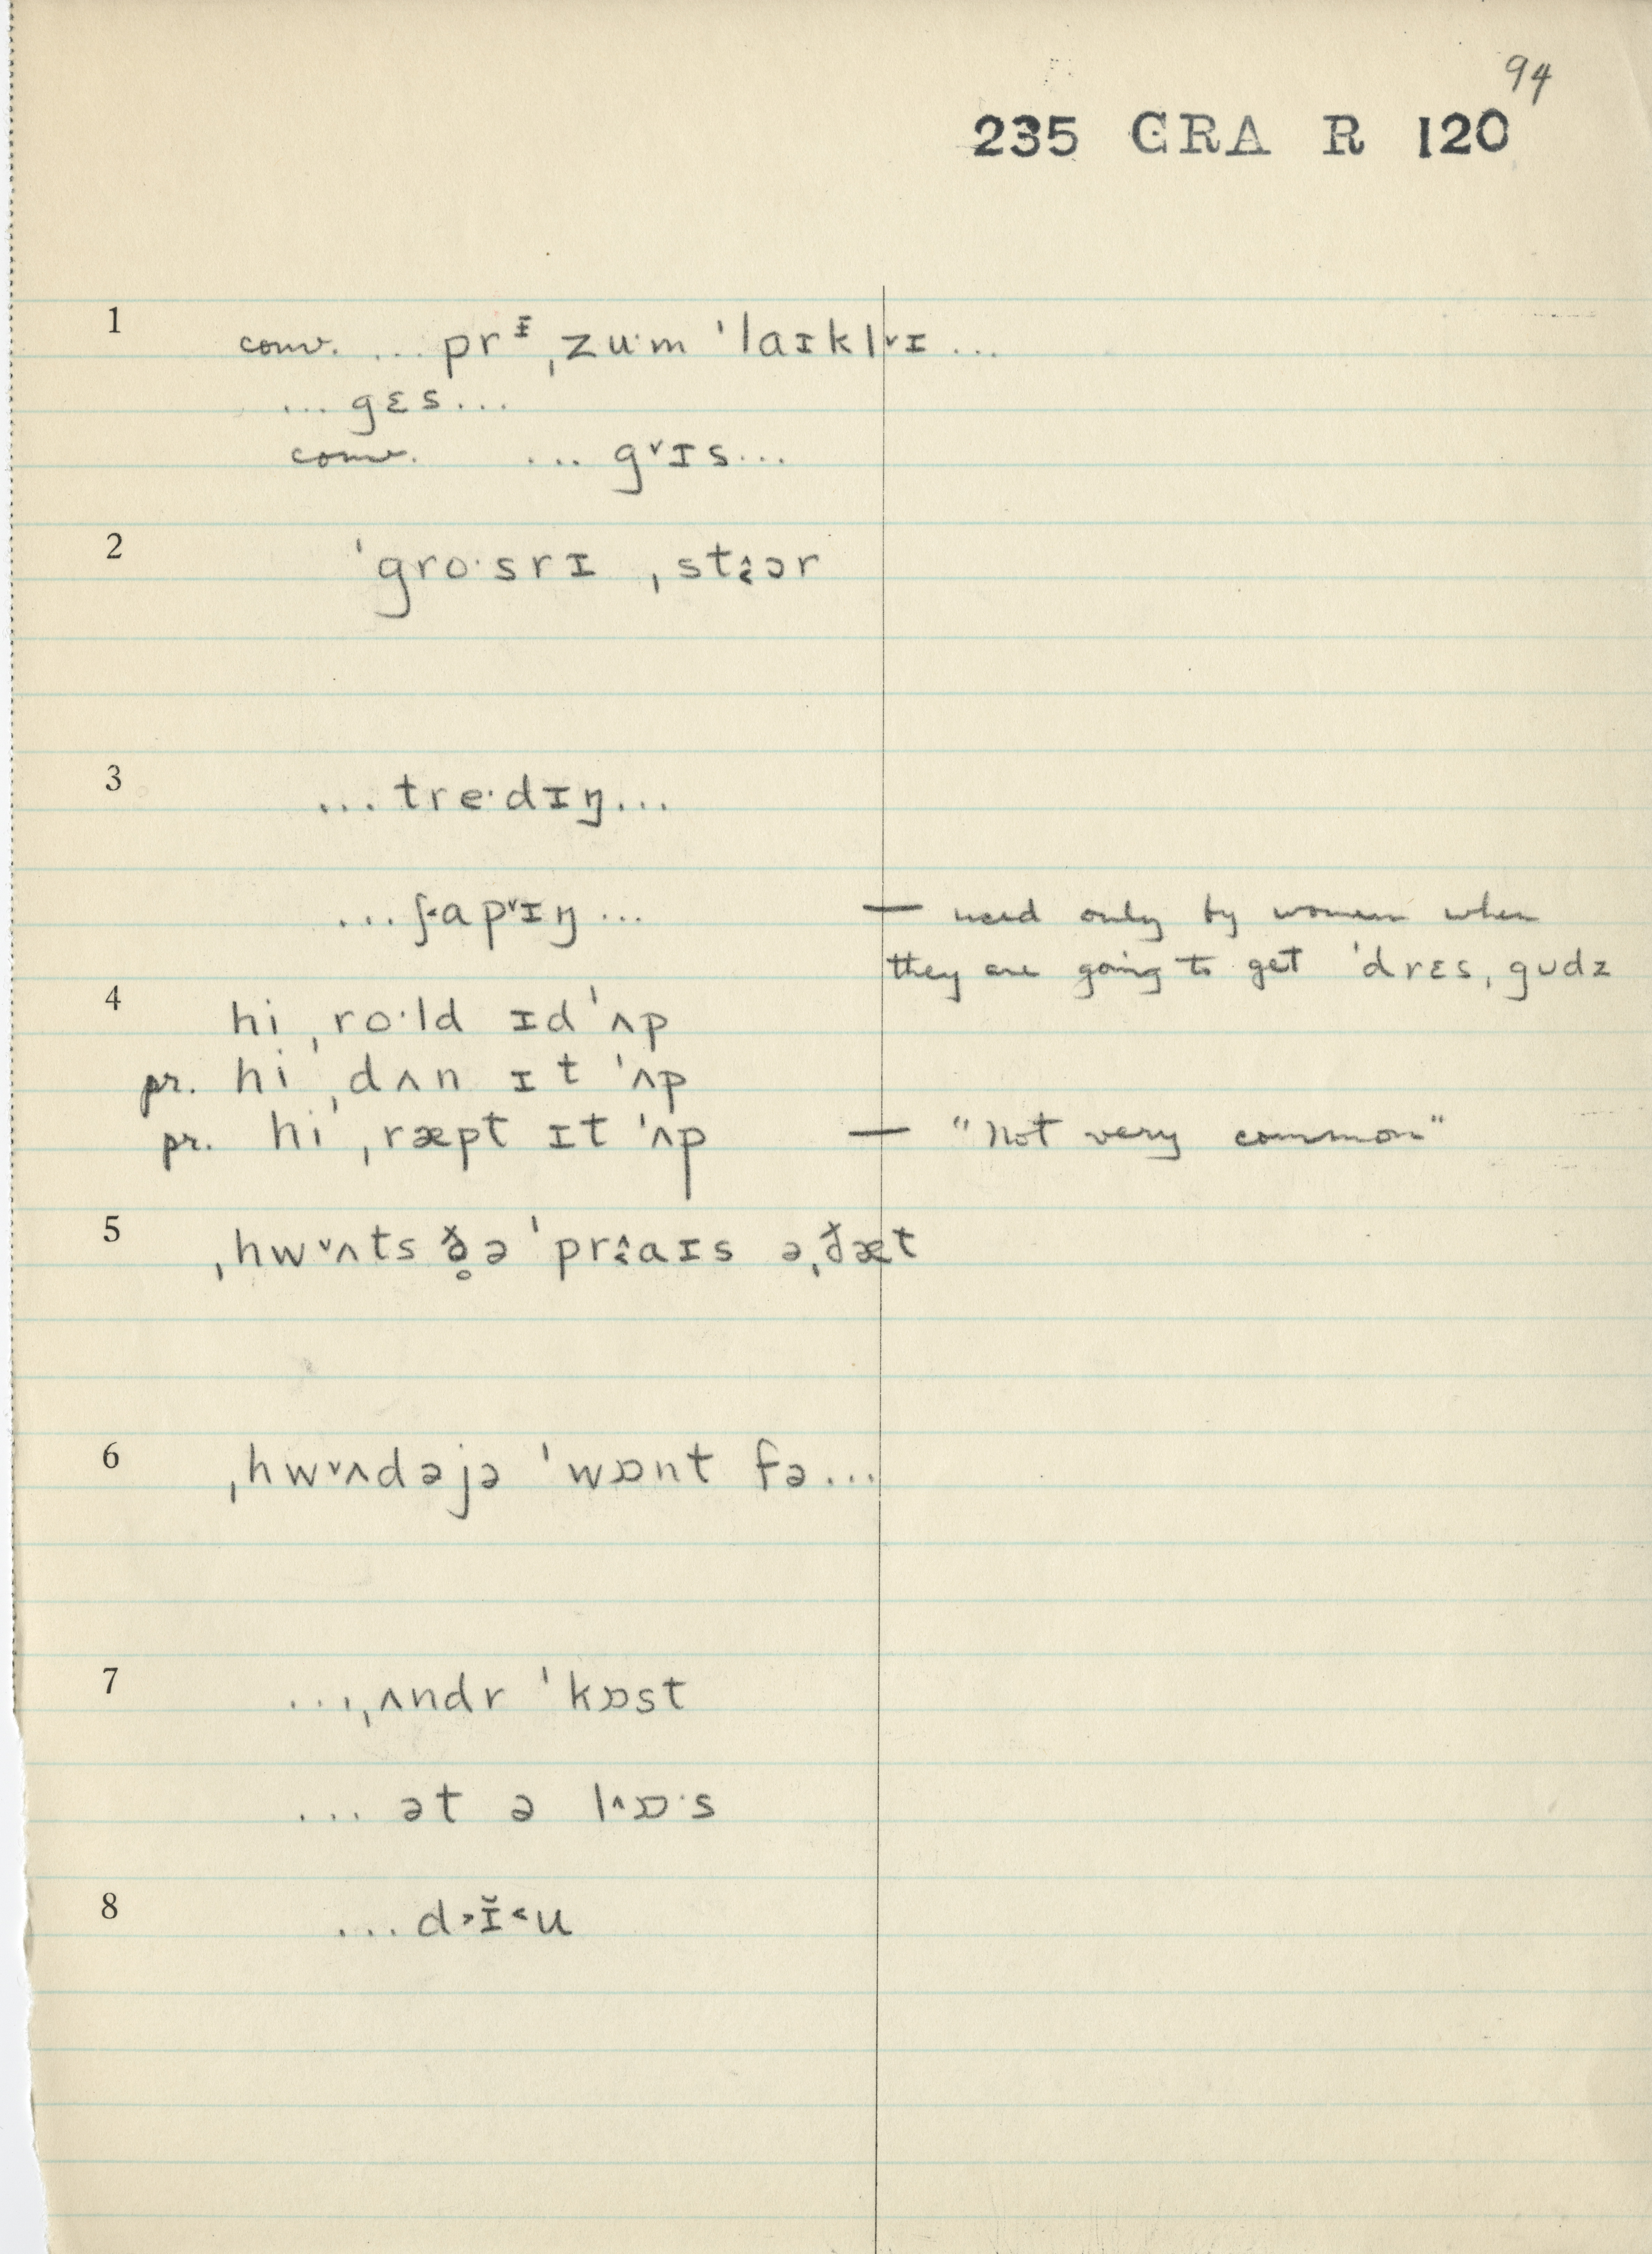 94
235 GRA R 120
1 conv. ... prᵻ̵ˌzuˑm ˈlaɪklᵛɪ ...
... gɛs ...
conv. ... gᵛɪs ...
2 ˈgroˑsrɪ ˌstɔər
3 ... treˑdɪŋ ...
... ʃ˂apᵛɪŋ ... — used only by women when
they are going to get ˈdrɛsˌgʊdz
4 hi ˌroˑld ɪd ˈʌp
pr. hi ˌdʌn ɪt ˈʌp
pr. hi ˌræpt ɪt ˈʌp — "Not very common"
5 ˌhwᵛʌts ð̥ə ˈpraɪs əˌðæt
6 ˌhwᵛʌdəjə ˈwɒnt fə ...
7 ... ˌʌndr ˈkɒst
... ət ə l^ɒˑs
8 ... d˃ɪ̆˂u